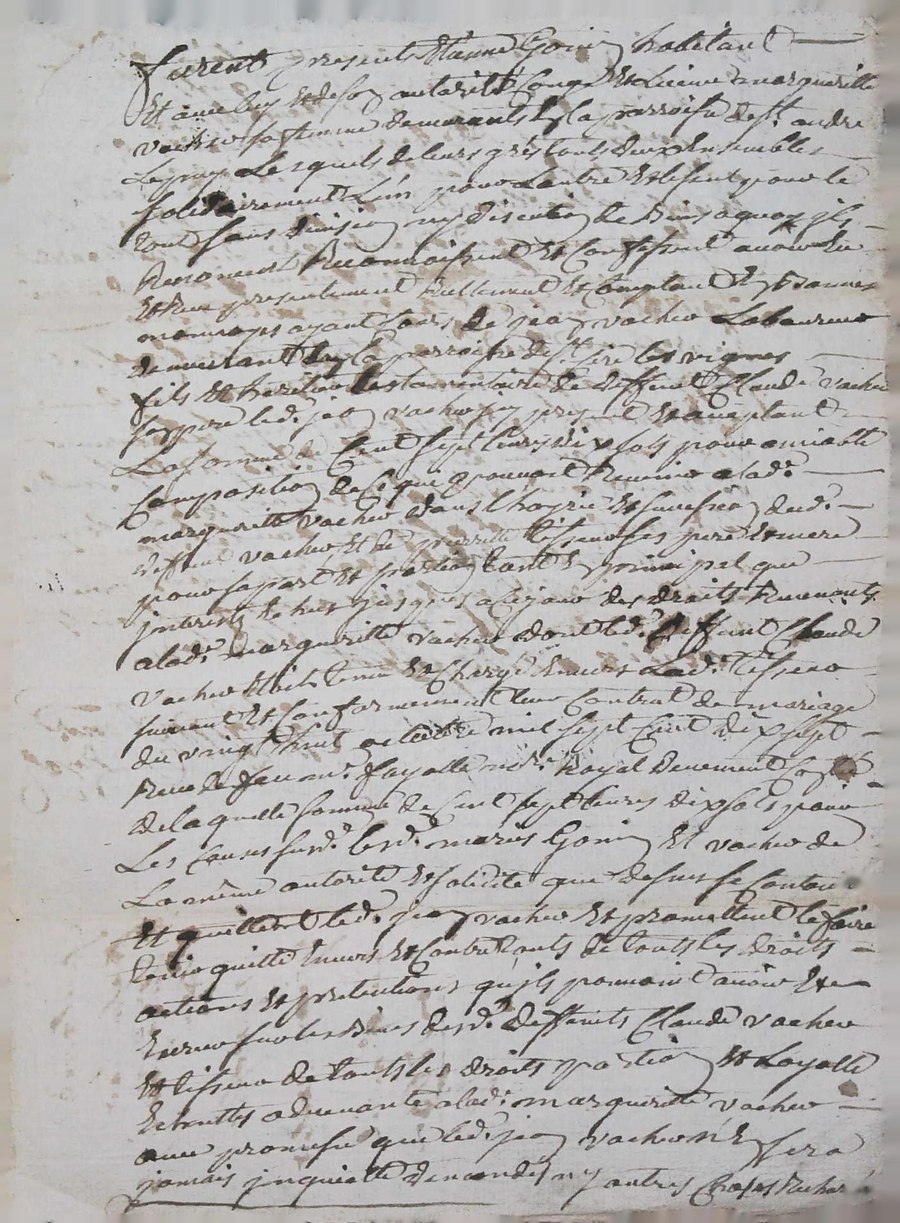 furent presents Etienne Goin habitant
Et avec luy Et de son autorité Congé Et Licence margueritte
vacher sa femme demeurants En la parroisse de st. andre
Lesquels de leurs gres touts deux Ensembles
solidairement L'un pour Lautre Et le seul pour le
tout sans division ny discution de Biens aquoy ils
Renoncent Reconnaissent Et Confessent avoir Eu
Et Receu presentement Reellement Et Comptant En bonnes
monnoyes ayant Cours de jean vacher Laboureur
demeurant En La parroisse de st. sire les vignes
fils Et heritier testamentaire de deffunt Claude vacher
son pere led. jean vacher icy present Et acceptant
La somme de Cent sept livres dix sols pour amiable
Composition de Ce que pouvoit Revenir a lad.
margueritte vacher dans lhoyrie Et sucession dud.
deffunt vacher Et de pierrette tisseur ses pere Et mere
pour sa part Et portion tant En principal que
interests Echus jusques a Ce jour des droits Revenants
a lad. margueritte vacher dont led. deffunt Claude
vacher Etoit tenu Et Chargé Envers Lad. tisseur
suivant Et Conformement leur Contrat de mariage
du vingt huit octobre mil sept Cent dix sept
Receu de feu mr. fayolle nore. Royal Duement
de laquelle somme de Cent sept livres dix sols pour
Les Causes susd. lesd. mariés Goin Et vacher de
La même autorité Et solidité que dessus se Contentent
Et quittent led. jean vacher Et promettent le faire
tenir quitte Envers Et Contre touts de touts les droits
actions Et pretentions qu'ils pouvoient avoir Et
Exercer sur les Biens desd. deffunts Claude vacher
Et tisseur de touts les droits portion Et Loyalle
Echuttes advenants a lad. margueritte vacher
avec promesse que led. jean vacher n'En sera
jamais inquietté Demandé ny autres Choses Recherché